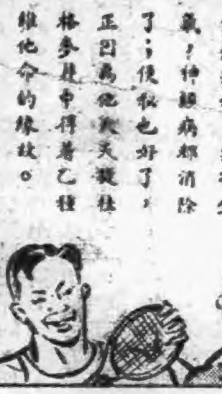 氣，神經病都消除
了；便秘也好了，
正因為他天天從桂
格麥片中得着乙種
維他命的緣故。